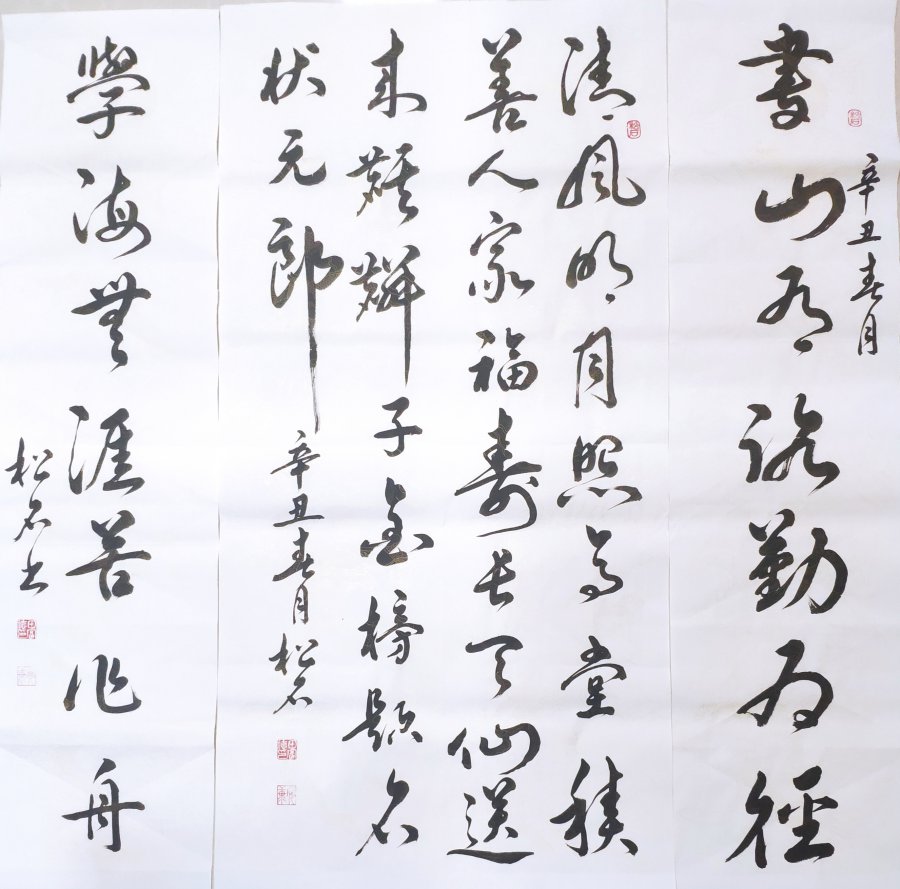 書山有路勤为徑
辛丑春月
清風明月照高堂積
善人家福壽長天仙送
来麒麟子金榜题名
状元郎
辛丑春月松石
學海無涯苦作舟
松石书